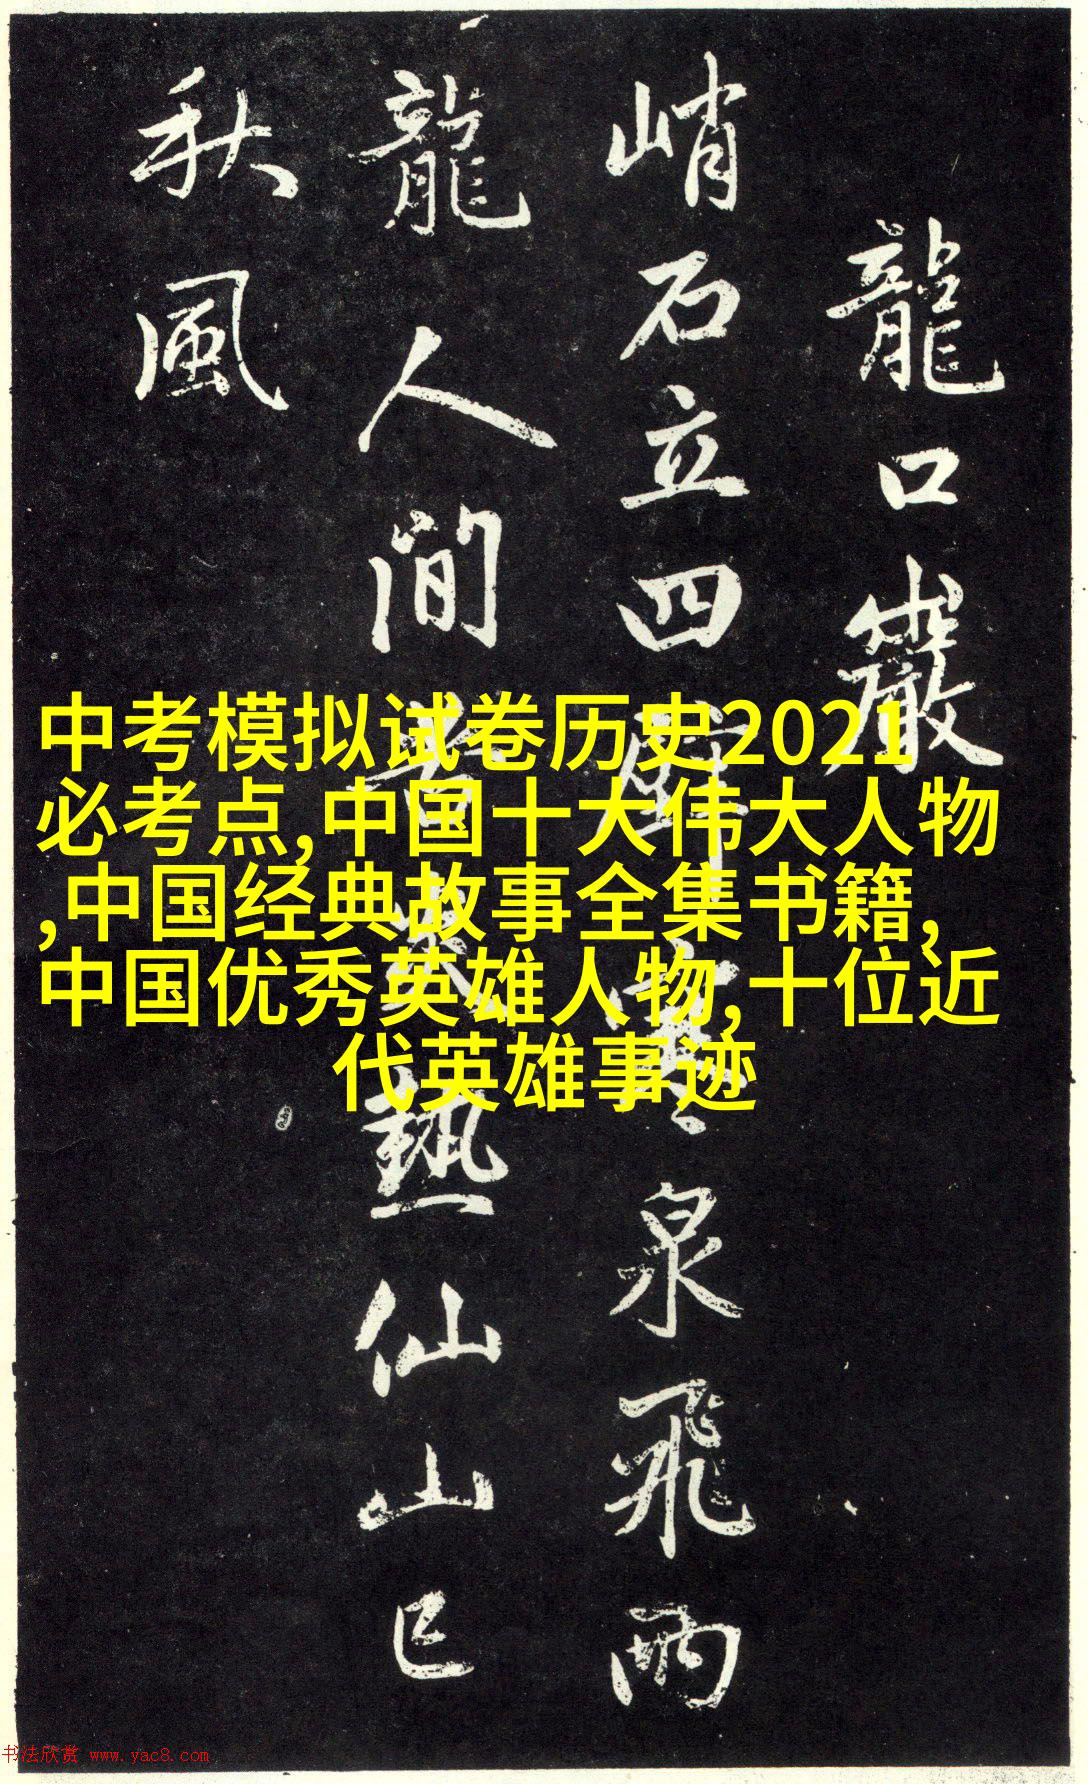 龍口巖
峭石立四壁寒泉飛兩
龍人間苦炎熱仙山已
秋風
中考模拟试卷历史2021
必考点,中国十大伟大人物
,中国经典故事全集书籍,
中国优秀英雄人物,十位近
代英雄事迹
书法欣赏 www.yac8.com